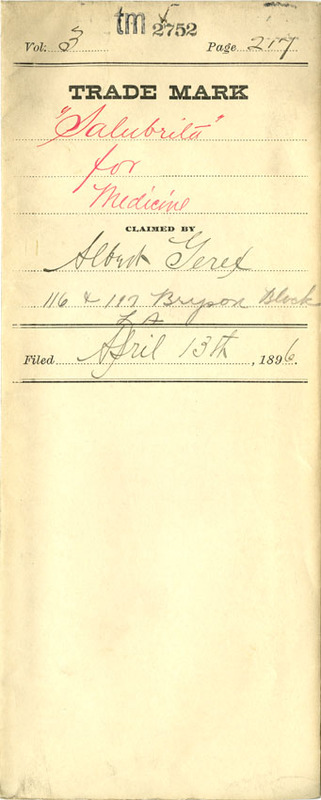 tm 2752
Vol. 3 Page 217
TRADE MARK
"Salubrita"
for
Medicine
CLAIMED BY
Albert
116 & 117 Bryson Block
LA
Filed April 13th, 1896.